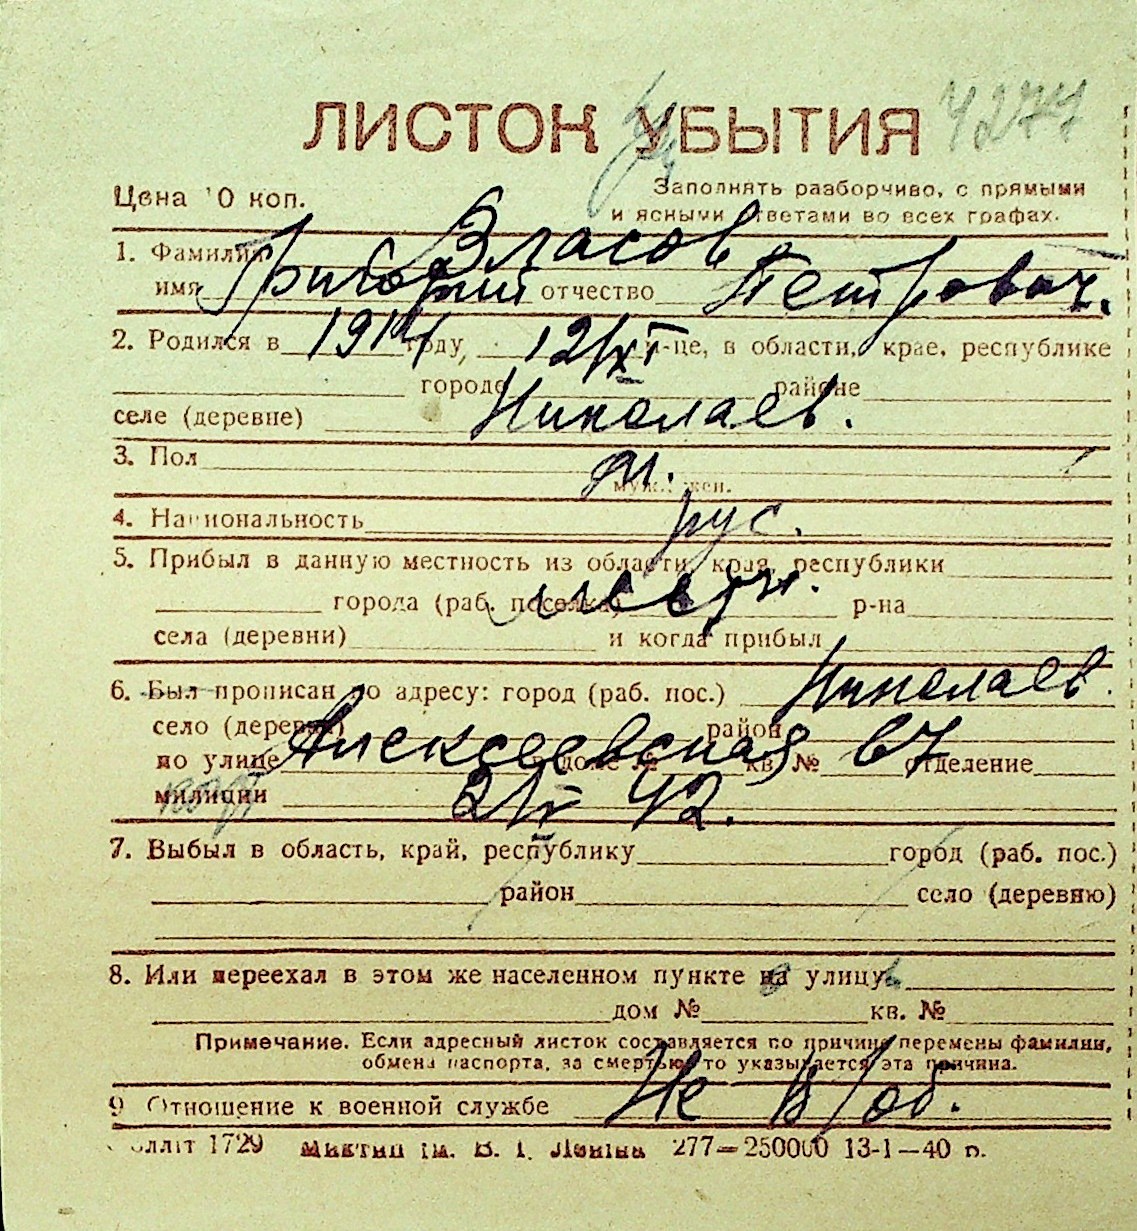 ЛИСТОК УБЫТИЯ 4277
Цена 10 коп. Заполнять разборчиво, с прямыми
и ясными ответами во всех графах.
1. Фамилия Власов
имя Григорий отчество Петрович.
2. Родился в 1914 году, 12/XI м-це, в области, крае, республике
городе районе
Николаев.
селе (деревне)
3. Пол м.
муж., жен.
4. Национальность рус.
5. Прибыл в данную местность из области, края, республики
местн.
города (раб. поселка) р-на
села (деревни) и когда прибыл
6. Был прописан по адресу: город (раб. пос.) Николаев.
село (деревня) район
по улице Алексеевская 67 в доме № кв. № отделение
милиции 42.
7. Выбыл в область, край, республику город (раб. пос.)
район село (деревню)
8. Или переехал в этом же населенном пункте на улицу
дом № кв. №
Примечание. Если адресный листок составляется по причине перемены фамилии,
обмена паспорта, за смертью, то указывается эта причина.
9 Отношение к военной службе Не в/об.
1729 им. В. І. Леніна 277—250000 13-1—40 р.